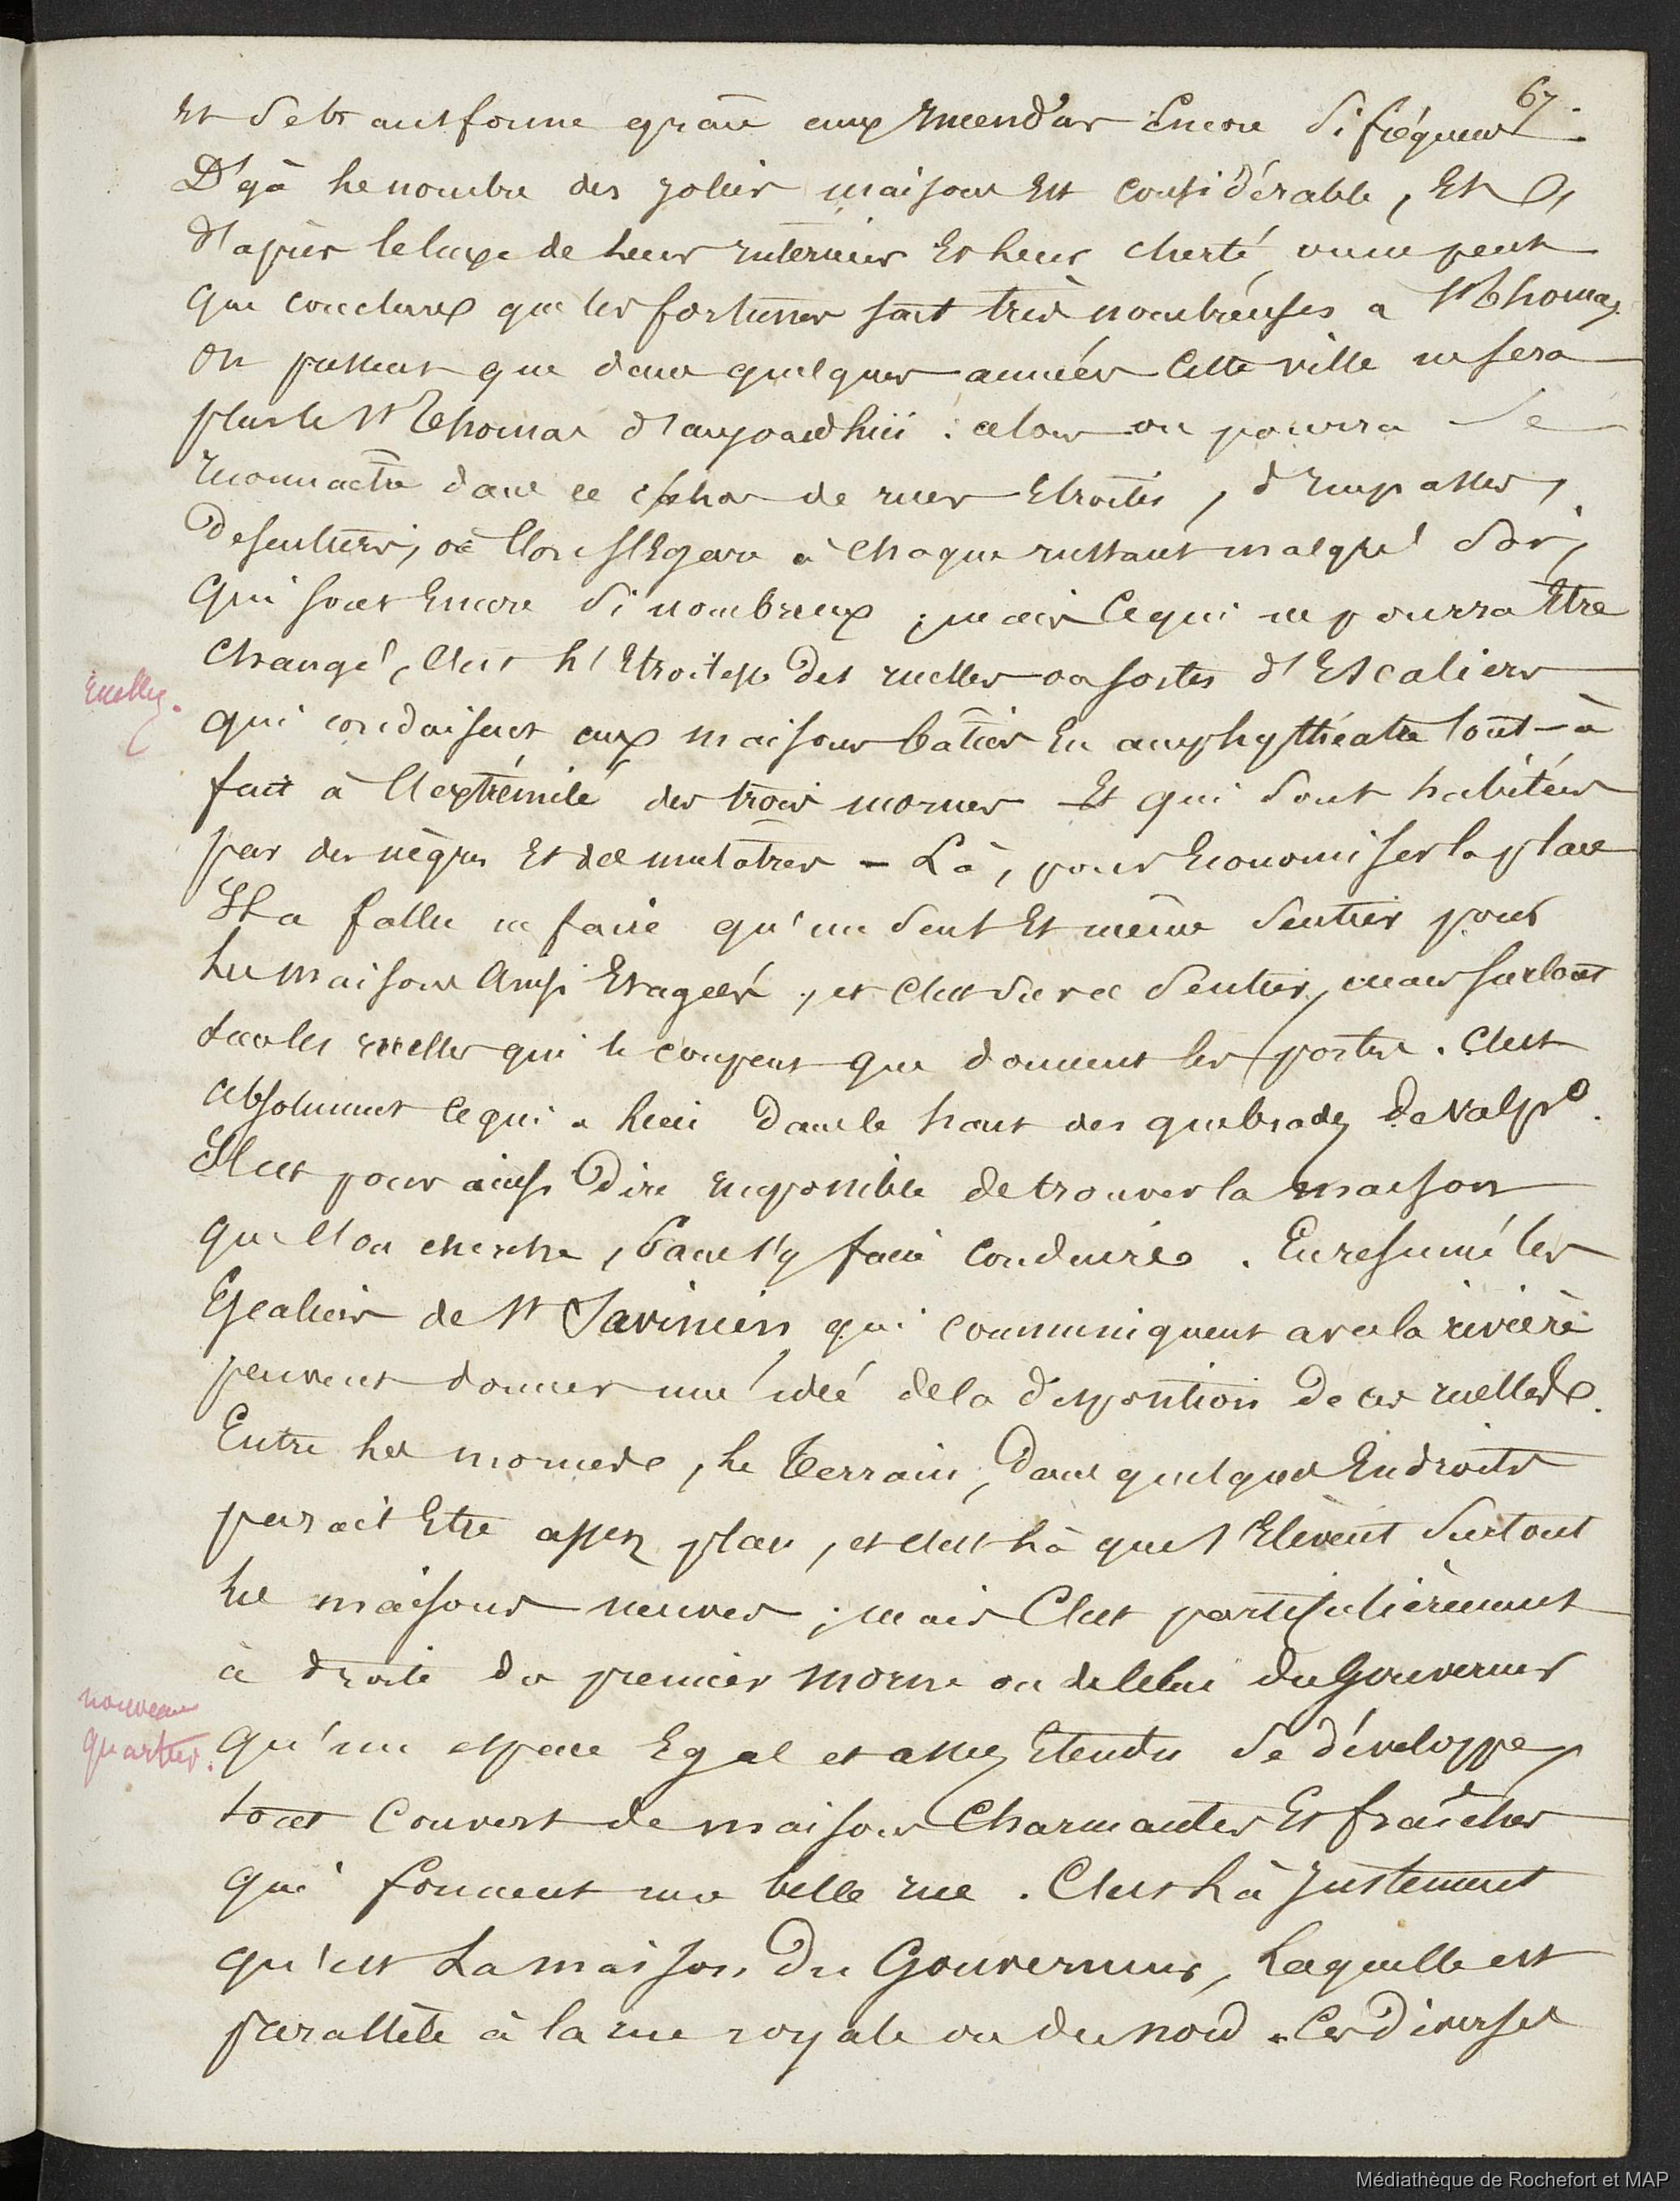 67.
et se transforme grâce aux incendies Encore si fréquens.
Déjà le nombre des jolies maisons Est considérable, Et
d'après le luxe de leur intérieur Et leur cherté, on ne peut
que conclure que les fortunes sont très nombreuses a St Thomas,
On présent que dans quelques années Cette ville ne sera
plus le St Thomas d'aujourd'huï : alors on pourra se
reconnaitre dans ce cahos de rues Etroites, d'Impasses,
De sentiers, où l'on s'Egare à chaque instant malgré soi,
Qui sont Encore si nombreux ; mais Ce qui ne pourra Etre
changé, C'est l'Etroitesse Des ruelles ou sortes d'Escaliers
Ruelles.
qui conduisent aux maisons bâties En amphythéatre tout-à
fait à l'extrémité des trois mornes Et qui sont habitées
par des nègres Et des mulâtres - Là, pour Economiser la place
Il a fallu ne faire qu'un seul Et même sentier pour
les maisons Ainsi Etagées, et c'est sur ce sentier, mais surtout
sur les ruelles qui le coupent que donnent les portes. C'est
Absolument Ce qui a lieu Dans le haut des quebradas De Valpo.
Il est pour ainsi Dire impossible de trouver la maison
que l'on cherche, sans s'y faire conduire. En resumé les
Escaliers de St Savinien qui communiquent avec la rivière
peuvent donner une idée de la disposition De ces ruelles.
Entre les mornes, le Terrain, Dans quelques Endroits
parait Etre assez plan, et c'est là que s'Elèvent surtout
les maisons neuves ; mais C'est particulièrement
à droite du premier morne ou de celui du Gouverneur
nouveau
quartier.
Qu'un espace Egal et assez Etendu se développe,
tout Couvert de maisons Charmantes Et fraîches
qui forment une belle rue. C'est là Justement
qu'est La maison Du Gouverneur, Laquelle est
parallèle à la rue royale ou du nord. Ces Diverses
Médiathèque de Rochefort et MAP